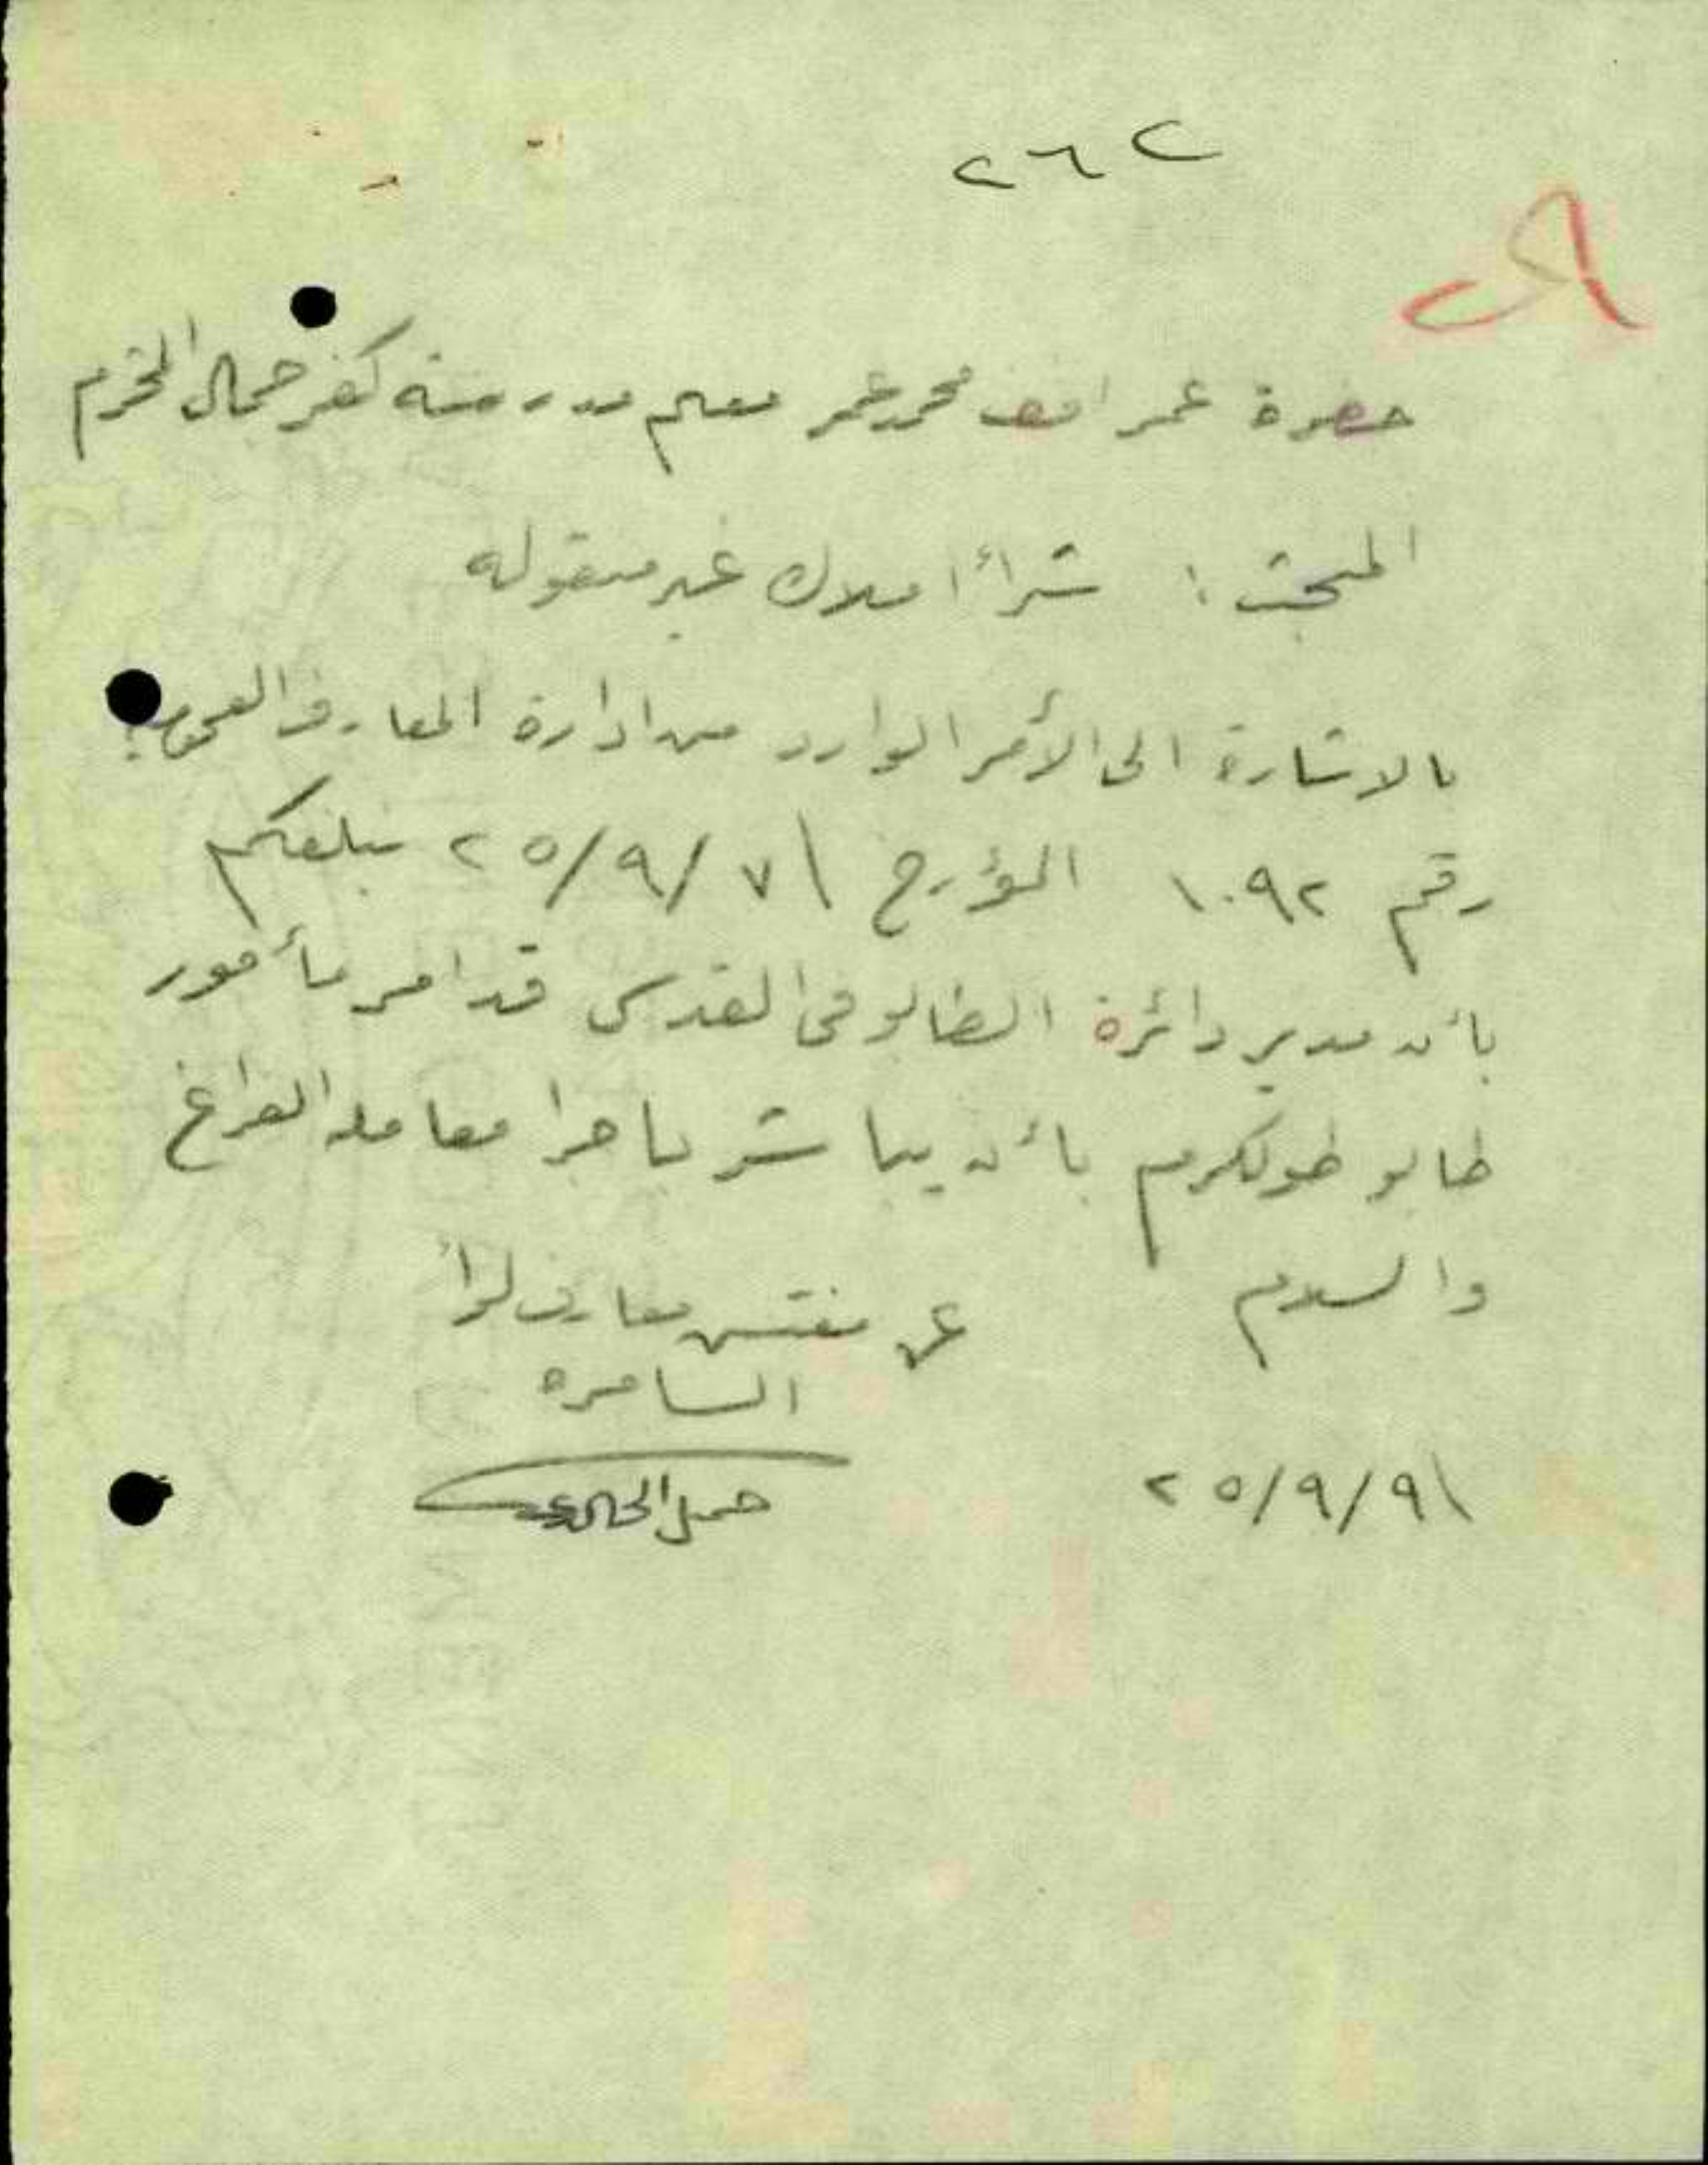 ٢٦٢
حضرة عمر افندي محمد عمر معلم مدرسة كفر جمال المحترم
المبحث: شراء املاك غير منقوله
بالاشارة الى الأمر الوارد من ادارة المعارف العموميه
رقم ١٠٩٢ المؤرخ ٢٥/٩/٧\ نبلغكم
بأن مدير دائرة الطابو في القدس قد امر مأمور
طابو طولكرم بأن يباشر باجرا معاملة الفراغ
والسلام
عن مفتش معارف لواء
السامره
٢٥/٩/٩\